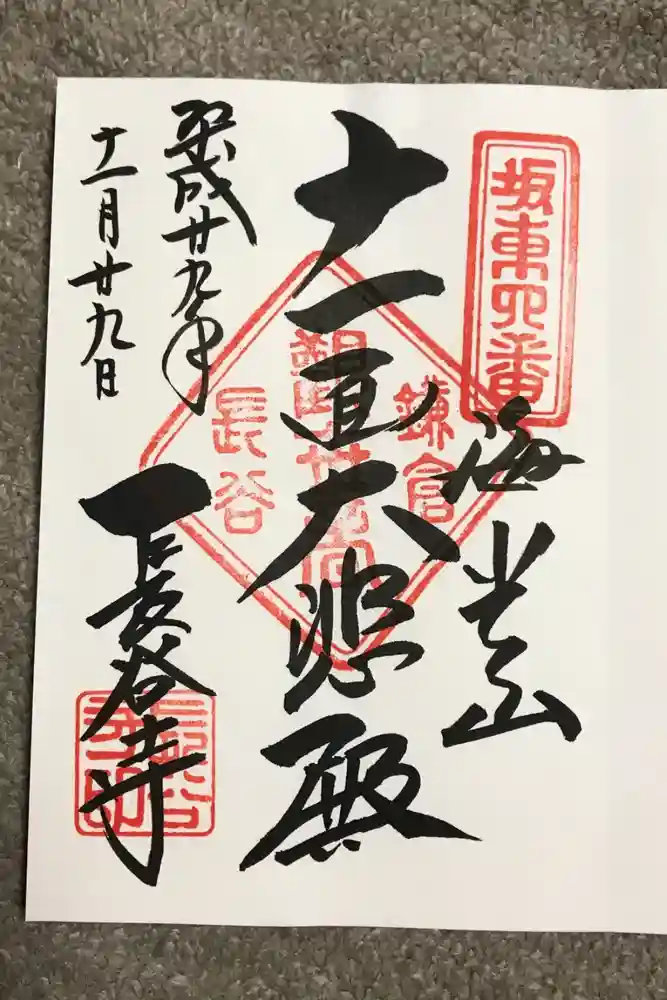 坂東四番
海光山
十一面大悲殿
鎌倉
観世音
長谷
平成廿九年
十一月廿九日
長谷寺
長谷寺印